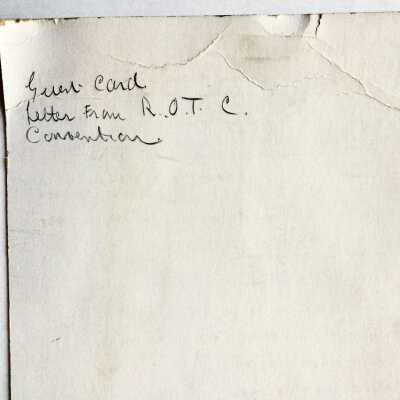 Guest Card
Letter From R.O.T.C.
Convention.